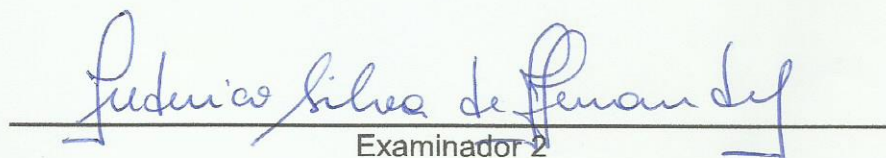 Frederico Silva de Fernandes
Examinador 2